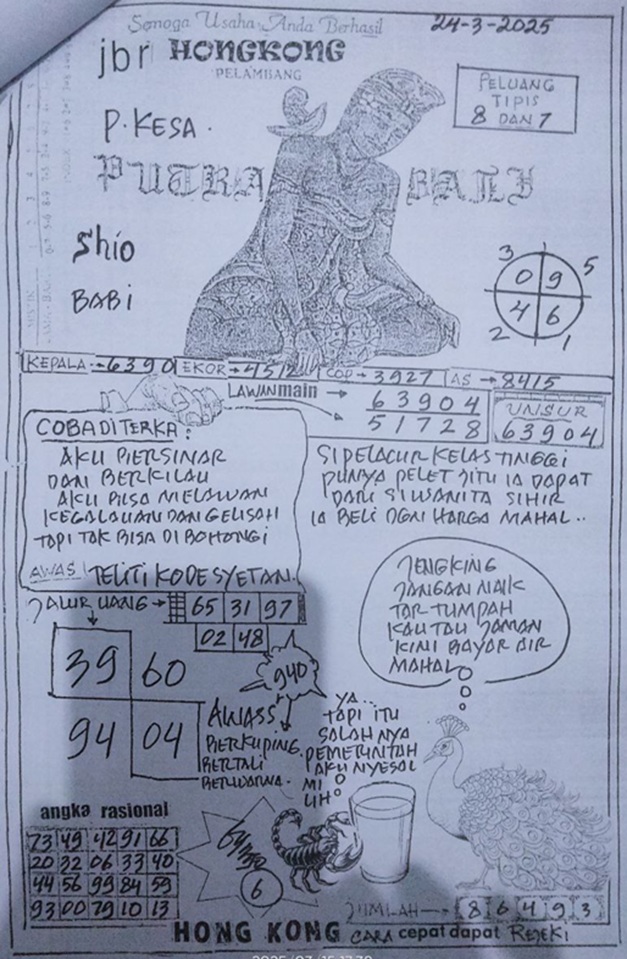 Semoga Usaha Anda Berhasil
24-3-2025
jbr HONGKONG
PELAMBANG
PELUANG
TIPIS
8 DAN 7
P. KESA.
PUTRA BALI
Shio
BABI
3 5
0 9
4 6
2 1
KEPALA → 6390 EKOR → 4512 COP → 3927 AS → 8415
LAWAN main → 63904
51728
UNSUR
63904
COBA DITERKA:
AKU BERSINAR
DAN BERKILAU
AKU BISA MELAWAN
KEGALAUAN DAN GELISAH
TAPI TAK BISA DI BOHONGI
SI PELACUR KELAS TINGGI
PUNYA PELET JITU IA DAPAT
DARI SI WANITA SIHIR
IA BELI DGN HARGA MAHAL..
AWAS TELITI KODE SYETAN.
JALUR UANG → 65 31 97
02 48
39 60
94 04
940
AWASS
BERKUPING.
BERTALI
BERWARNA.
JENGKING
JANGAN NAIK
TAR TUMPAH
KAU TAU JAMAN
KINI BAYAR AIR
MAHAL
YA...
TAPI ITU
SALAH NYA
PEMERINTAH
AKU NYESAL
MI
LIH
angka rasional
73 49 42 91 66
20 32 06 33 40
44 56 99 84 59
93 00 79 10 13
6
JUMLAH → 8 6 4 9 3
HONG KONG CARA cepat dapat REJEKI